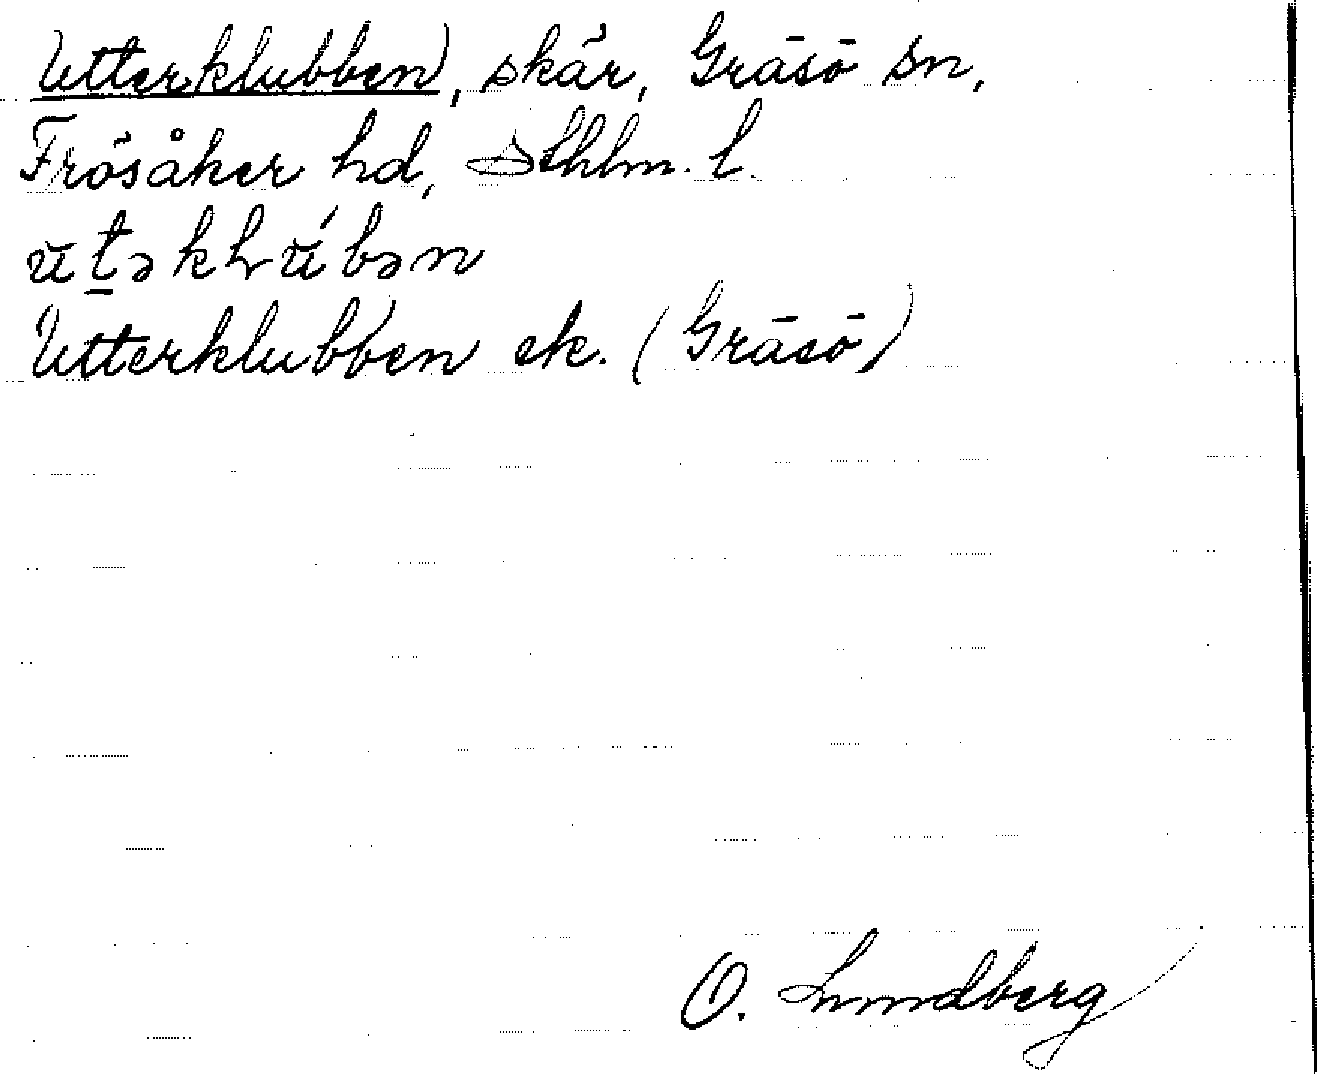 Utterklubben, skär, Gräsö sn,
Frösåker hd, Sthlm. l.
ŭt̲əkɫŭ́bən
Utterklubben ek. (Gräsö)
O. Lundberg